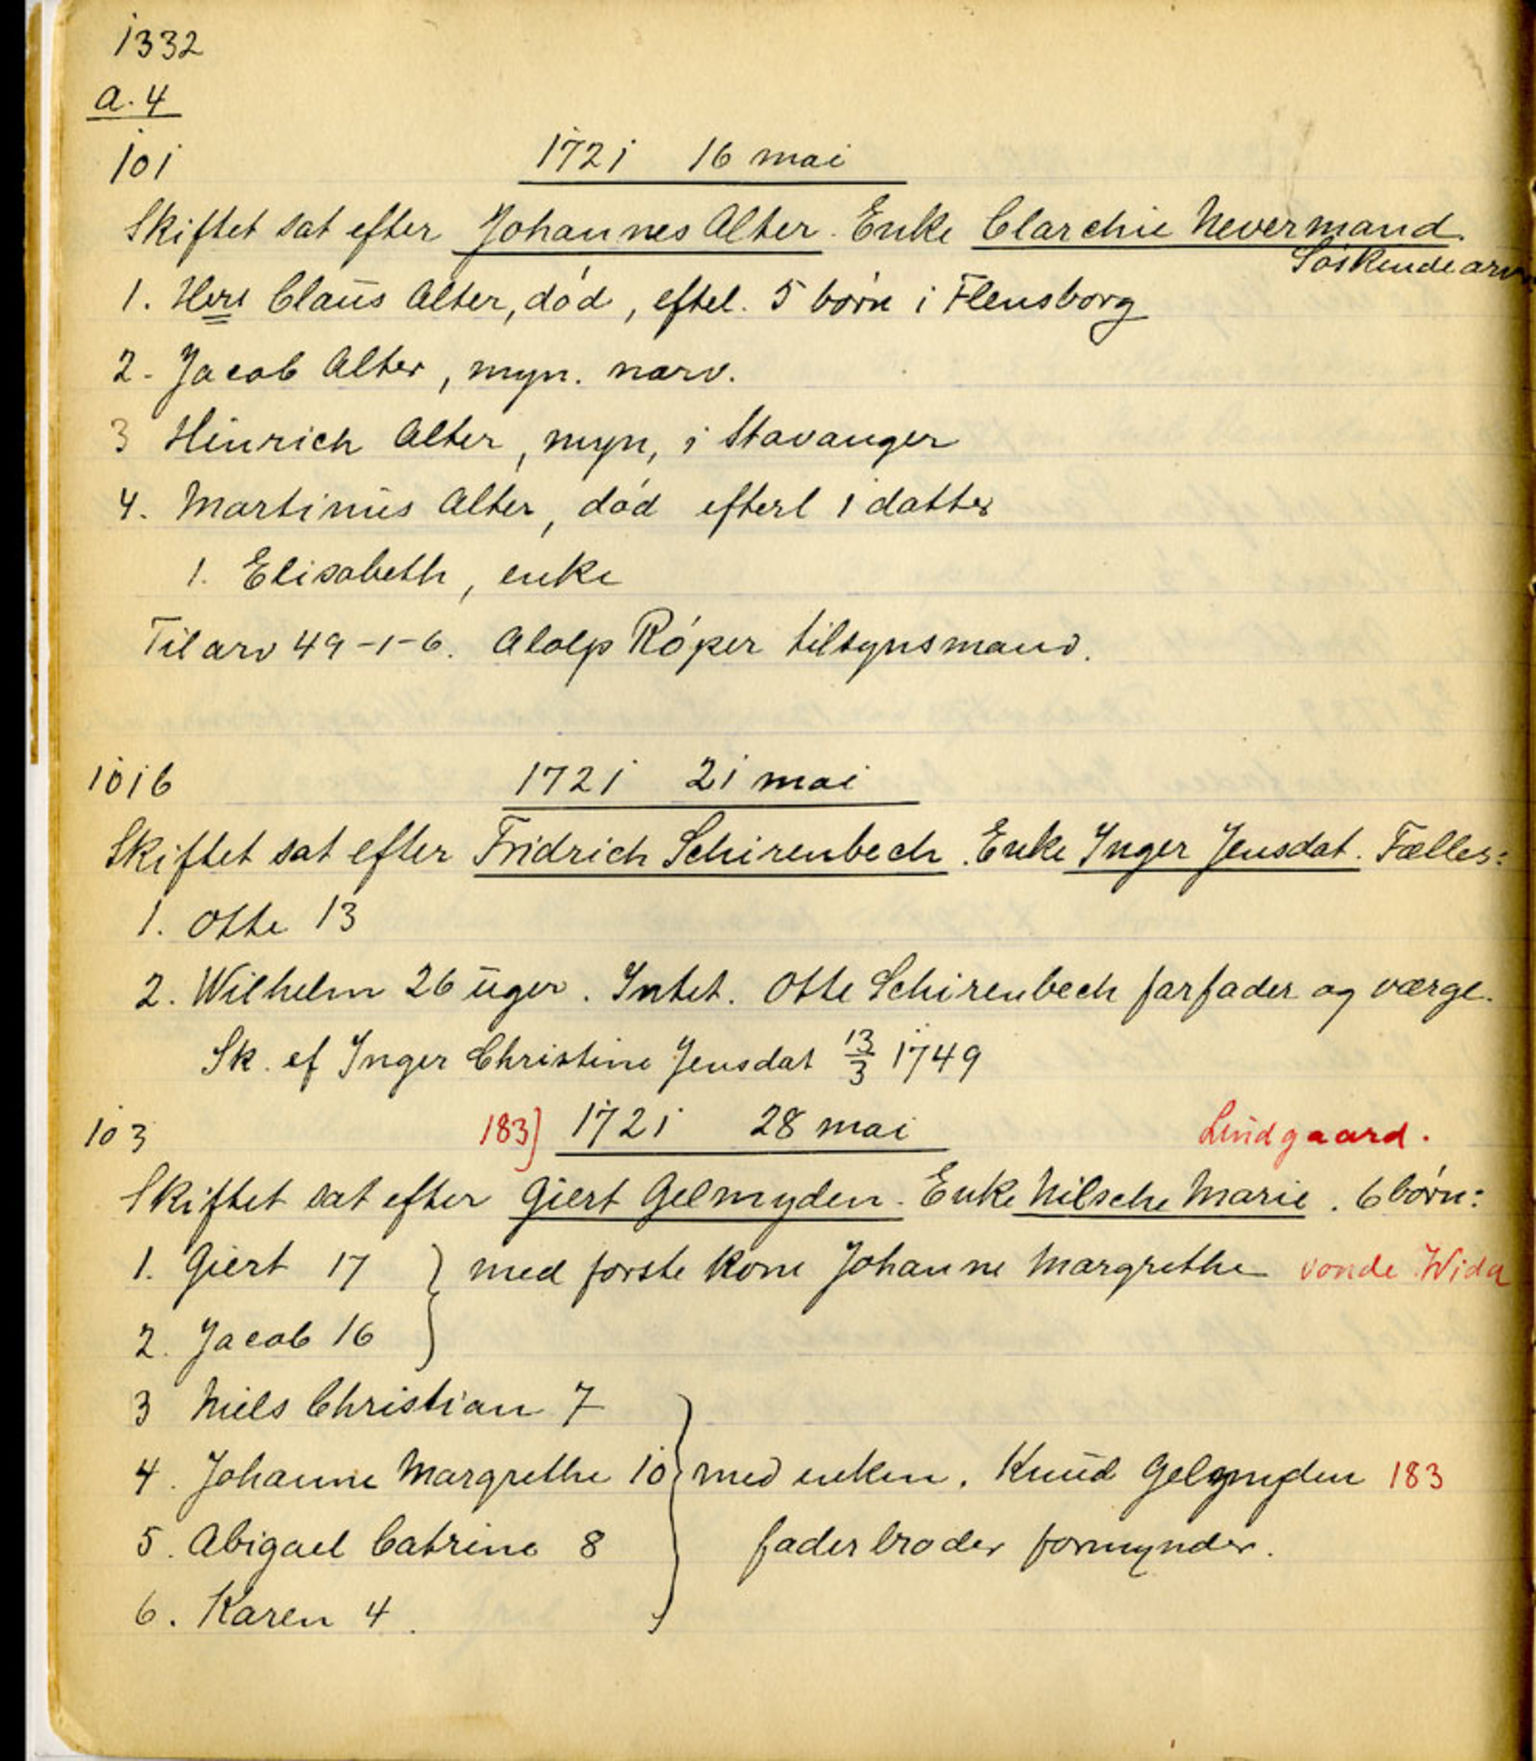 1332
a. 4
101 1721 16 mai
Skiftet sat efter Johannes Alter. Enke Clarchie Nevermand.
Søskendearv
1. Herr Claus Alter, død, eftel. 5 børn i Flensborg
2. Jacob Alter, myn. nærv.
3 Hinrich Alter, myn, i Stavanger
4. Martinus Alter, død efterl 1 datter
1. Elisabeth, enke
Til arv 49-1-6. Alolp Røper tilsynsmand.
101b 1721 21 mai
Skiftet sat efter Fridrich Schirenbech. Enke Inger Jensdat. Fælles:
1. Otte 13
2. Wilhelm 26 uger. Intet. Otte Schirenbech farfader og værge.
Sk. ef Inger Christine Jensdat 13/3 1749
103 183] 1721 28 mai Lindgaard.
Skiftet sat efter Giert Gelmyden. Enke Nilsche Marie. 6 børn:
1. Giert 17 } med første kone Johanne Margrethe vonde Wida
2. Jacob 16
3 Niels Christian 7
4. Johanne Margrethe 10 } med enken. Knud Gelmyden 183
5. Abigael Catrine 8 faderbroder formynder.
6. Karen 4.